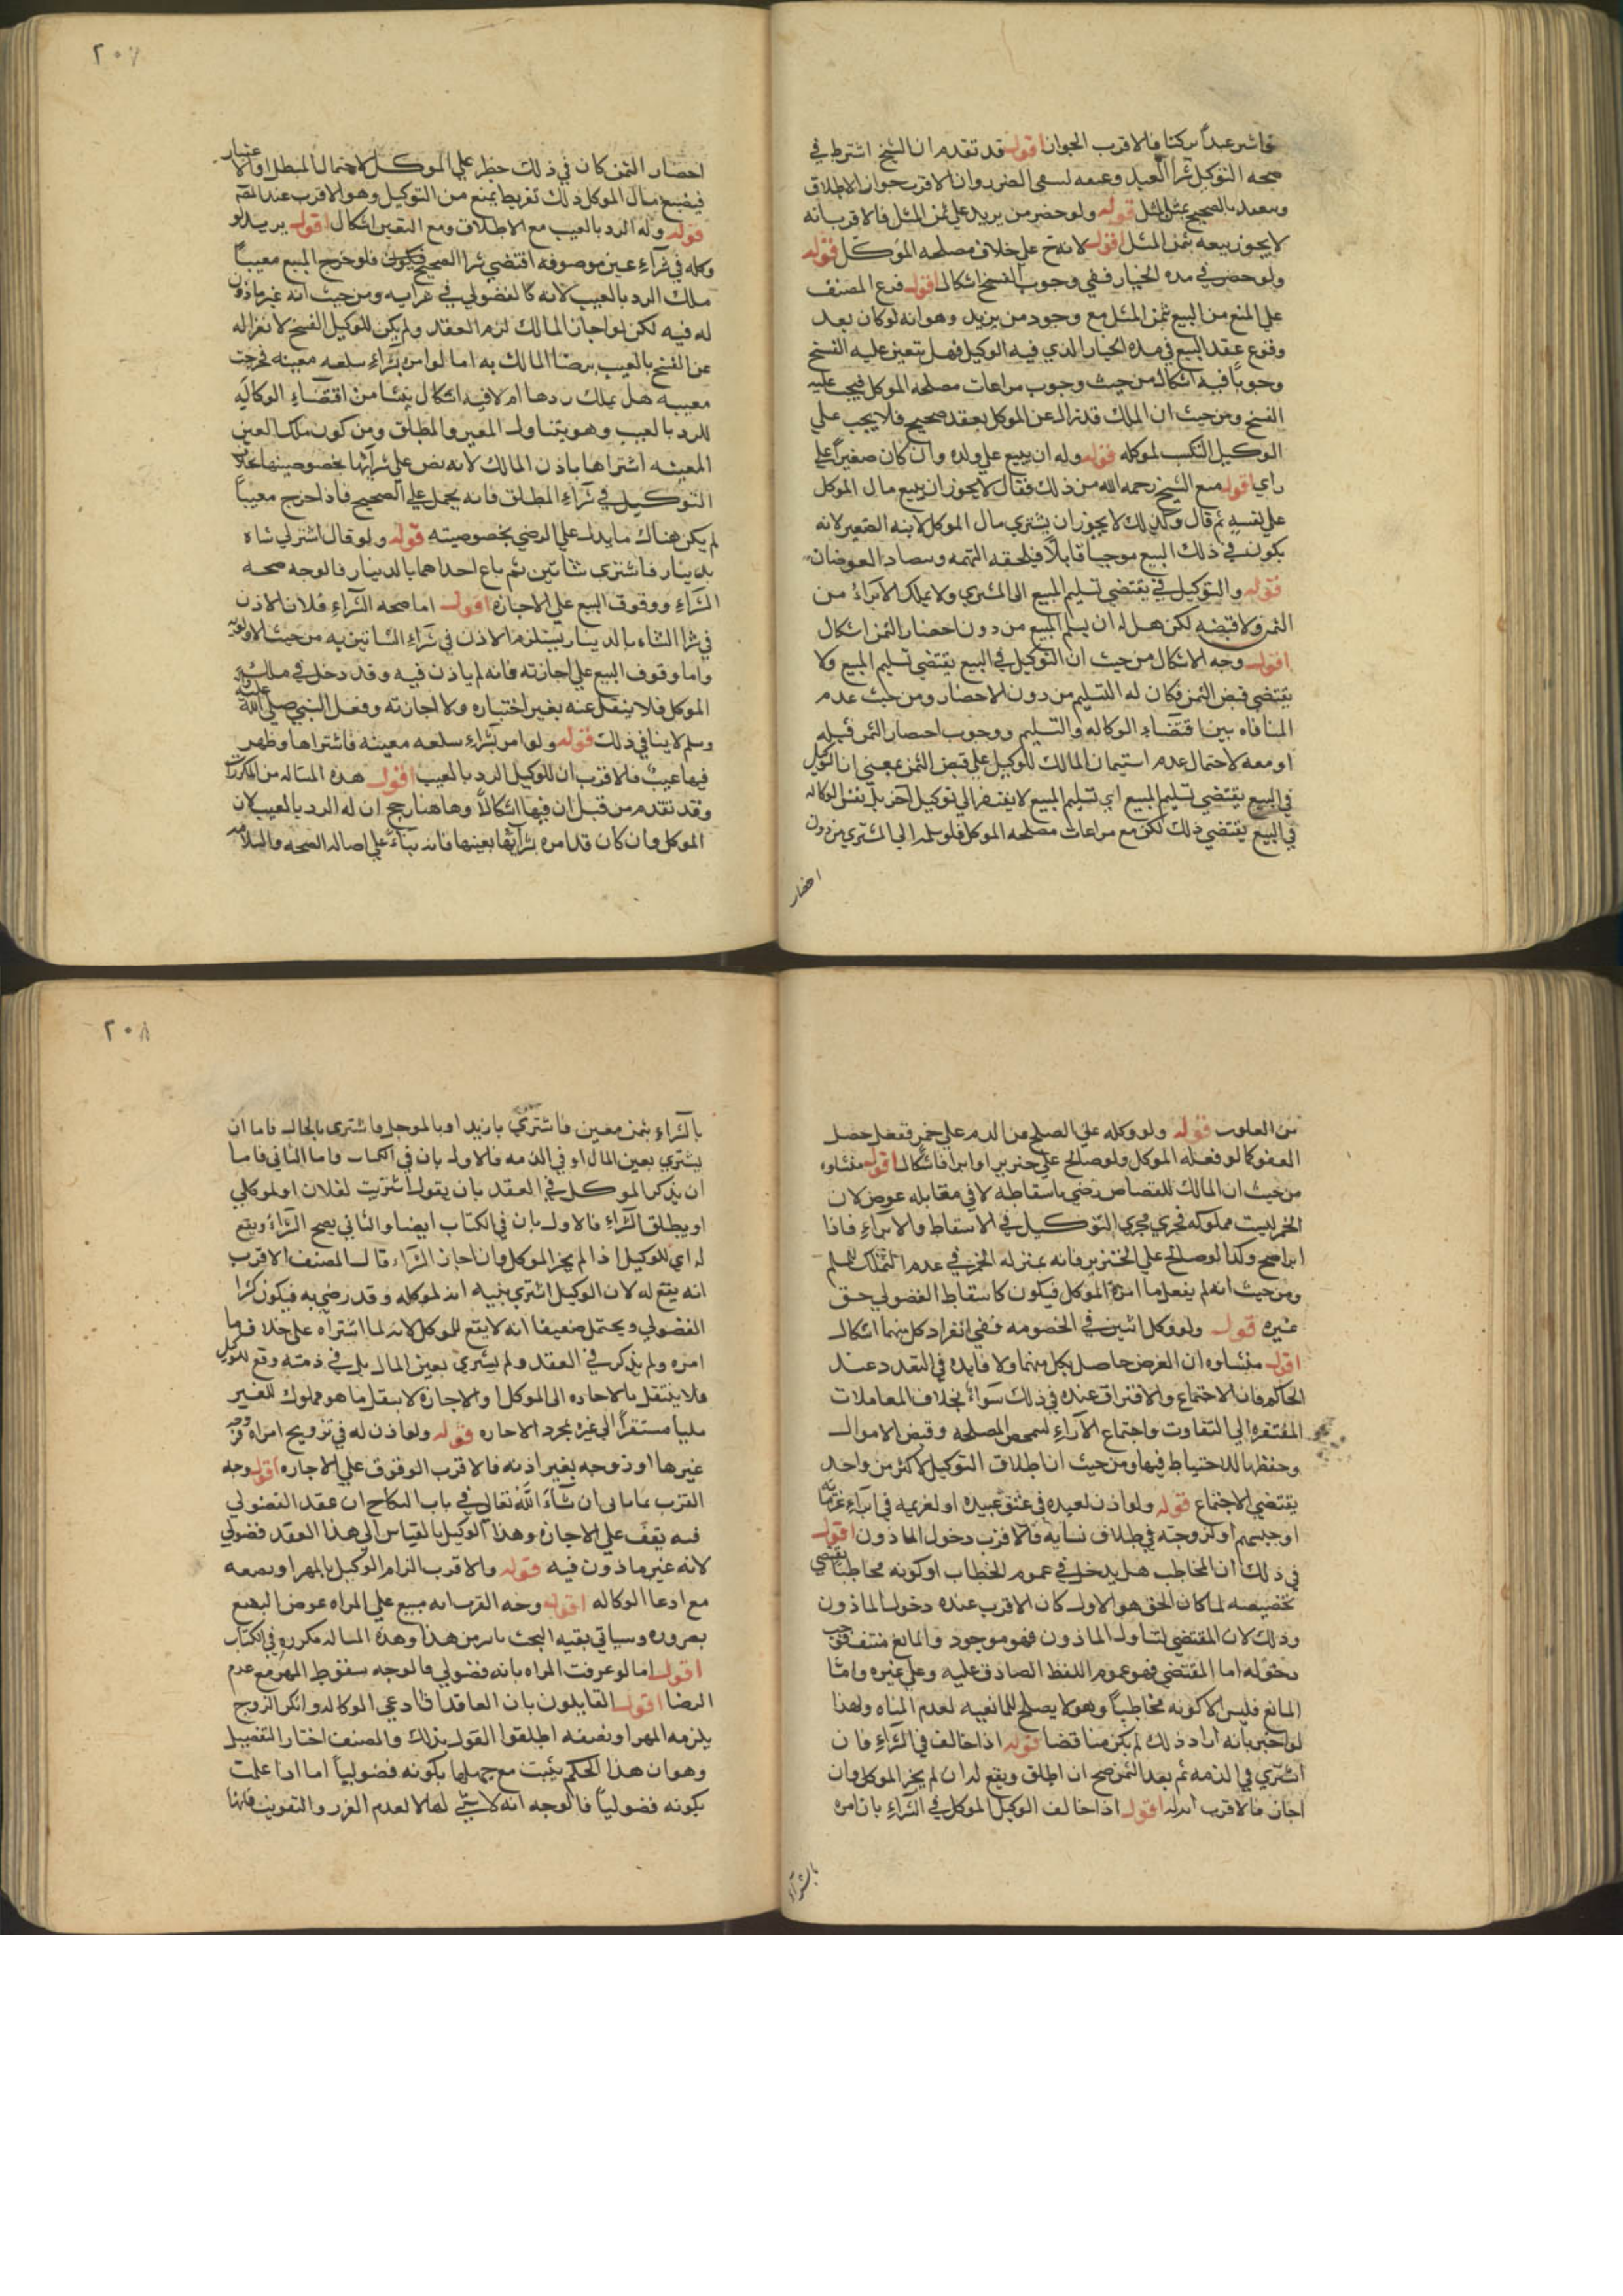 فاشر عبداً تركنا فالاقرب الجواز اقول قد تقدم ان الشيخ اشترط في
صحه التوكيل شرا العبد وعينه لينفى الضرر وان الاقرب جواز الاطلاق
بالصحيح بثمن المثل قوله ولو حضر من يزيد علي ثمن المثل فالاقرب انه
لا يجوز بيعه بثمن المثل اقول لانه ح علي خلاف مصلحه الموكل قوله
ولو حضر في مده الخيار ففي وجوب الفسخ اشكال اقول فرع المصنف
علي المنع من البيع بثمن المثل مع وجود من يزيد وهو انه لو كان بعد
وقوع عقد البيع في مده الخيار الذي فيه الوكيل فهل يتعين عليه الفسخ
وجوباً فيه اشكال من حيث وجوب مراعات مصلحه الموكل فيجب عليه
الفسخ ومن حيث ان الملك قد زال عن الموكل بعقد صحيح فلا يجب علي
الوكيل التكسب لموكله قوله وله ان يبيع علي ولده وان كان صغيراً علي
راي اقول منع الشيخ رحمه الله من ذلك فقال لا يجوز ان يبيع مال الموكل
علي نفسه ثم قال وكذلك لا يجوز ان يشتري مال الموكل لابنه الصغير لانه
يكون في ذلك البيع موجبا قابلاً فيلحقه التهمه ويتضاد الغرضان
قوله والتوكيل في يقتضي تسليم المبيع الى المشتري ولا يملك الابراء من
الثمن ولا قبضه لكن هل له ان يسلم المبيع من دون احضار الثمن اشكال
اقول وجه الاشكال من حيث ان التوكيل في البيع يقتضي تسليم المبيع ولا
يقتضي قبض الثمن فكان له التسليم من دون الاحضار ومن حيث عدم
المنافاه بين اقتضاء الوكاله والتسليم ووجوب احضار الثمن قبله
او معه لاحتمال عدم استيمان المالك للوكيل علي قبض الثمن بمعني ان التوكيل
في البيع يقتضي تسليم المبيع اي تسليم المبيع لا يفتقر الي توكيل آخر بل نفس الوكاله
في البيع يقتضي ذلك لكن مع مراعات مصلحه الموكل فلو سلمه الي المشتري من دون
احضار
٢٠٧
احضار الثمن كان في ذلك خطر علي الموكل لاحتمال المبطل او الاعتبار
فيضيع مال الموكل ذلك تفريط يمنع من التوكيل وهو الاقرب عند المصنف
قوله وله الرد بالعيب مع الاطلاق ومع التعين اشكال اقول يريد لو
وكله في شراء عين موصوفه اقتضي شرا الصحيح فلو خرج المبيع معيباً
ملك الرد بالعيب لانه كالفضولي في شرايه ومن حيث انه غير ماذون
له فيه لكن لو اجاز المالك لزم العقد ولم يكن للوكيل الفسخ لانعزاله
عن الفسخ بالعيب برضا المالك به اما لو امره بشراء سلعه معينه فخرجت
معيبه هل يملك ردها ام لا فيه اشكال ينشا من اقتضاء الوكاله
للرد بالعيب وهو يتناول المعين والمطلق ومن كون ملك العين
المعينه اشتراها باذن المالك لانه نص علي شرائها بخصوصيتها بخلاف
التوكيل في شراء المطلق فانه يحمل علي الصحيح فاذا خرج معيباً
لم يكن هناك ما يدل علي الرضي بخصوصيته قوله ولو قال اشتر لي شاه
بدينار فاشترى شاتين ثم باع احداهما بالدينار فالوجه صحه
الشراء ووقوف البيع علي الاجازه اقول اما صحه الشراء فلان الاذن
في شرا الشاه بالدينار يستلزم الاذن في شراء الشاتين به من حيث الاولويه
واما وقوف البيع علي اجازته فانه لم ياذن فيه وقد دخل في ملك
الموكل فلا ينتقل عنه بغير اختياره ولا اجازته وفعل النبي صلي الله عليه
وسلم لا ينافي ذلك قوله ولو امر بشراء سلعه معينه فاشتراها وظهر
فيها عيب فالاقرب ان للوكيل الرد بالعيب اقول هذه المساله من المكررات
وقد تقدم من قبل ان فيها اشكالاً وهاهنا رجح ان له الرد بالعيب لان
الموكل وان كان قد امره بشرائها بعينها فانه بناءً علي اصاله الصحه والسلامه
من العيوب قوله ولو وكله علي الصلح من الدم علي خمر ففعل حصل
العفو كما لو فعله الموكل ولو صالح علي خنزير او ابرا فاشكال اقول منشاوه
من حيث ان المالك للقصاص رضي باسقاطه لا في مقابله عوض لان
الخمر ليست مملوكه فجري مجري التوكيل في الاسقاط والابراء فاذا
ابرا صح وكذا لو صالح علي الخنزير فانه بمنزله الخمر في عدم التملك للمسلم
ومن حيث انه لم يفعل ما امره الموكل فيكون كاسقاط الفضولي حق
غيره قوله ولو وكل اثنين في الخصومه ففي انفراد كل منهما اشكال
اقول منشاوه ان الغرض حاصل بكل منهما ولا فايده في التعدد عند
الحاكم فان الاجتماع والافتراق عنده في ذلك سواء بخلاف المعاملات
المفتقره الي التفاوت واجتماع الآراء المصلحه وقبض الاموال
وحفظها للاحتياط فيها ومن حيث ان اطلاق التوكيل لاكثر من واحد
يقتضي الاجتماع قوله ولو اذن لعبده في عتق عبيده او لغريمه في ابراء غرمائه
او حبسهم او لزوجته في طلاق نسايه فالاقرب دخول الماذون اقول
في ذلك ان المخاطب هل يدخل في عموم الخطاب او كونه مخاطباً يقتضي
تخصيصه لما كان الحق هو الاول كان الاقرب عنده دخول الماذون
وذلك لان المقتضي لتناول الماذون فهو موجود والمانع منتف فيجب
دخوله اما المقتضي فهو عموم اللفظ الصادق عليه وعلي غيره واما
المانع فليس الا كونه مخاطباً وهو لا يصلح للمانعيه لعدم المنافاه ولهذا
لو اخبر بانه اراد ذلك لم يكن مناقضا قوله اذا خالف في الشراء فان
اشتري في الذمه ثم بعد الثمن صح ان اطلق ويقع له ان لم يجز الموكل وان
اجاز فالاقرب انه له اقول اذا خالف الوكيل الموكل في الشراء بان امره
بالشراء
٢٠٨
بالشراء بثمن معين فاشتري بازيد او بالموجل فاشترى بالحال فاما ان
يشتري بعين المال او في الذمه فالاول بان في الكتاب واما الثاني فاما
ان يذكر الموكل في العقد بان يقول اشتريت لفلان او لموكلي
او يطلق الشراء فالاول بان في الكتاب ايضا والثاني يصح الشراء ويقع
له اي للوكيل اذا لم يجز الموكل وان اجاز الشراء قال المصنف الاقرب
انه يقع له لان الوكيل اشتري بنيه انه لموكله وقد رضي به فيكون كشرا
الفضولي ويحتمل ضعيفا انه لا يقع للموكل لانه لما اشتراه علي خلاف ما
امره ولم يذكر في العقد ولم يشتري بعين المال بل في ذمته وقع للوكيل
فلا ينتقل بالاجازه الى الموكل او الاجازه لا ينقل ما هو مملوك للغير
ملكياً مستقراً الي غيره بمجرد الاجازه قوله ولو اذن له في تزويج امراه فزوجه
غيرها او زوجه بغير اذنه فالاقرب الوقوف علي الاجازه اقول وجه
القرب ما ياتي ان شاء الله تعالي في باب النكاح ان عقد الفضولي
فيه يقف علي الاجازه وهذا الوكيل بالقياس الى هذا العقد فضولي
لانه غير ماذون فيه قوله والاقرب الزام الوكيل بالمهر او نصفه
مع ادعا الوكاله اقول وجه القرب انه مبيع علي المراه عوض البضع
بغروره وسياتي بقيه البحث من هذا وهذه المساله مكرره في الكتاب
اقول اما لو عرفت المراه بانه فضولي فالوجه سقوط المهر مع عدم
الرضا اقول القايلون بان العاقد اذا ادعي الوكاله وانكر الزوج
يلزمه المهر او نصفه اطلقوا القول بذلك والمصنف اختار التفصيل
وهو ان هذا الحكم يثبت مع جهلها بكونه فضولياً اما اذا علمت
بكونه فضولياً فالوجه انه لا شي لها لعدم الغرر والتفويت فانها